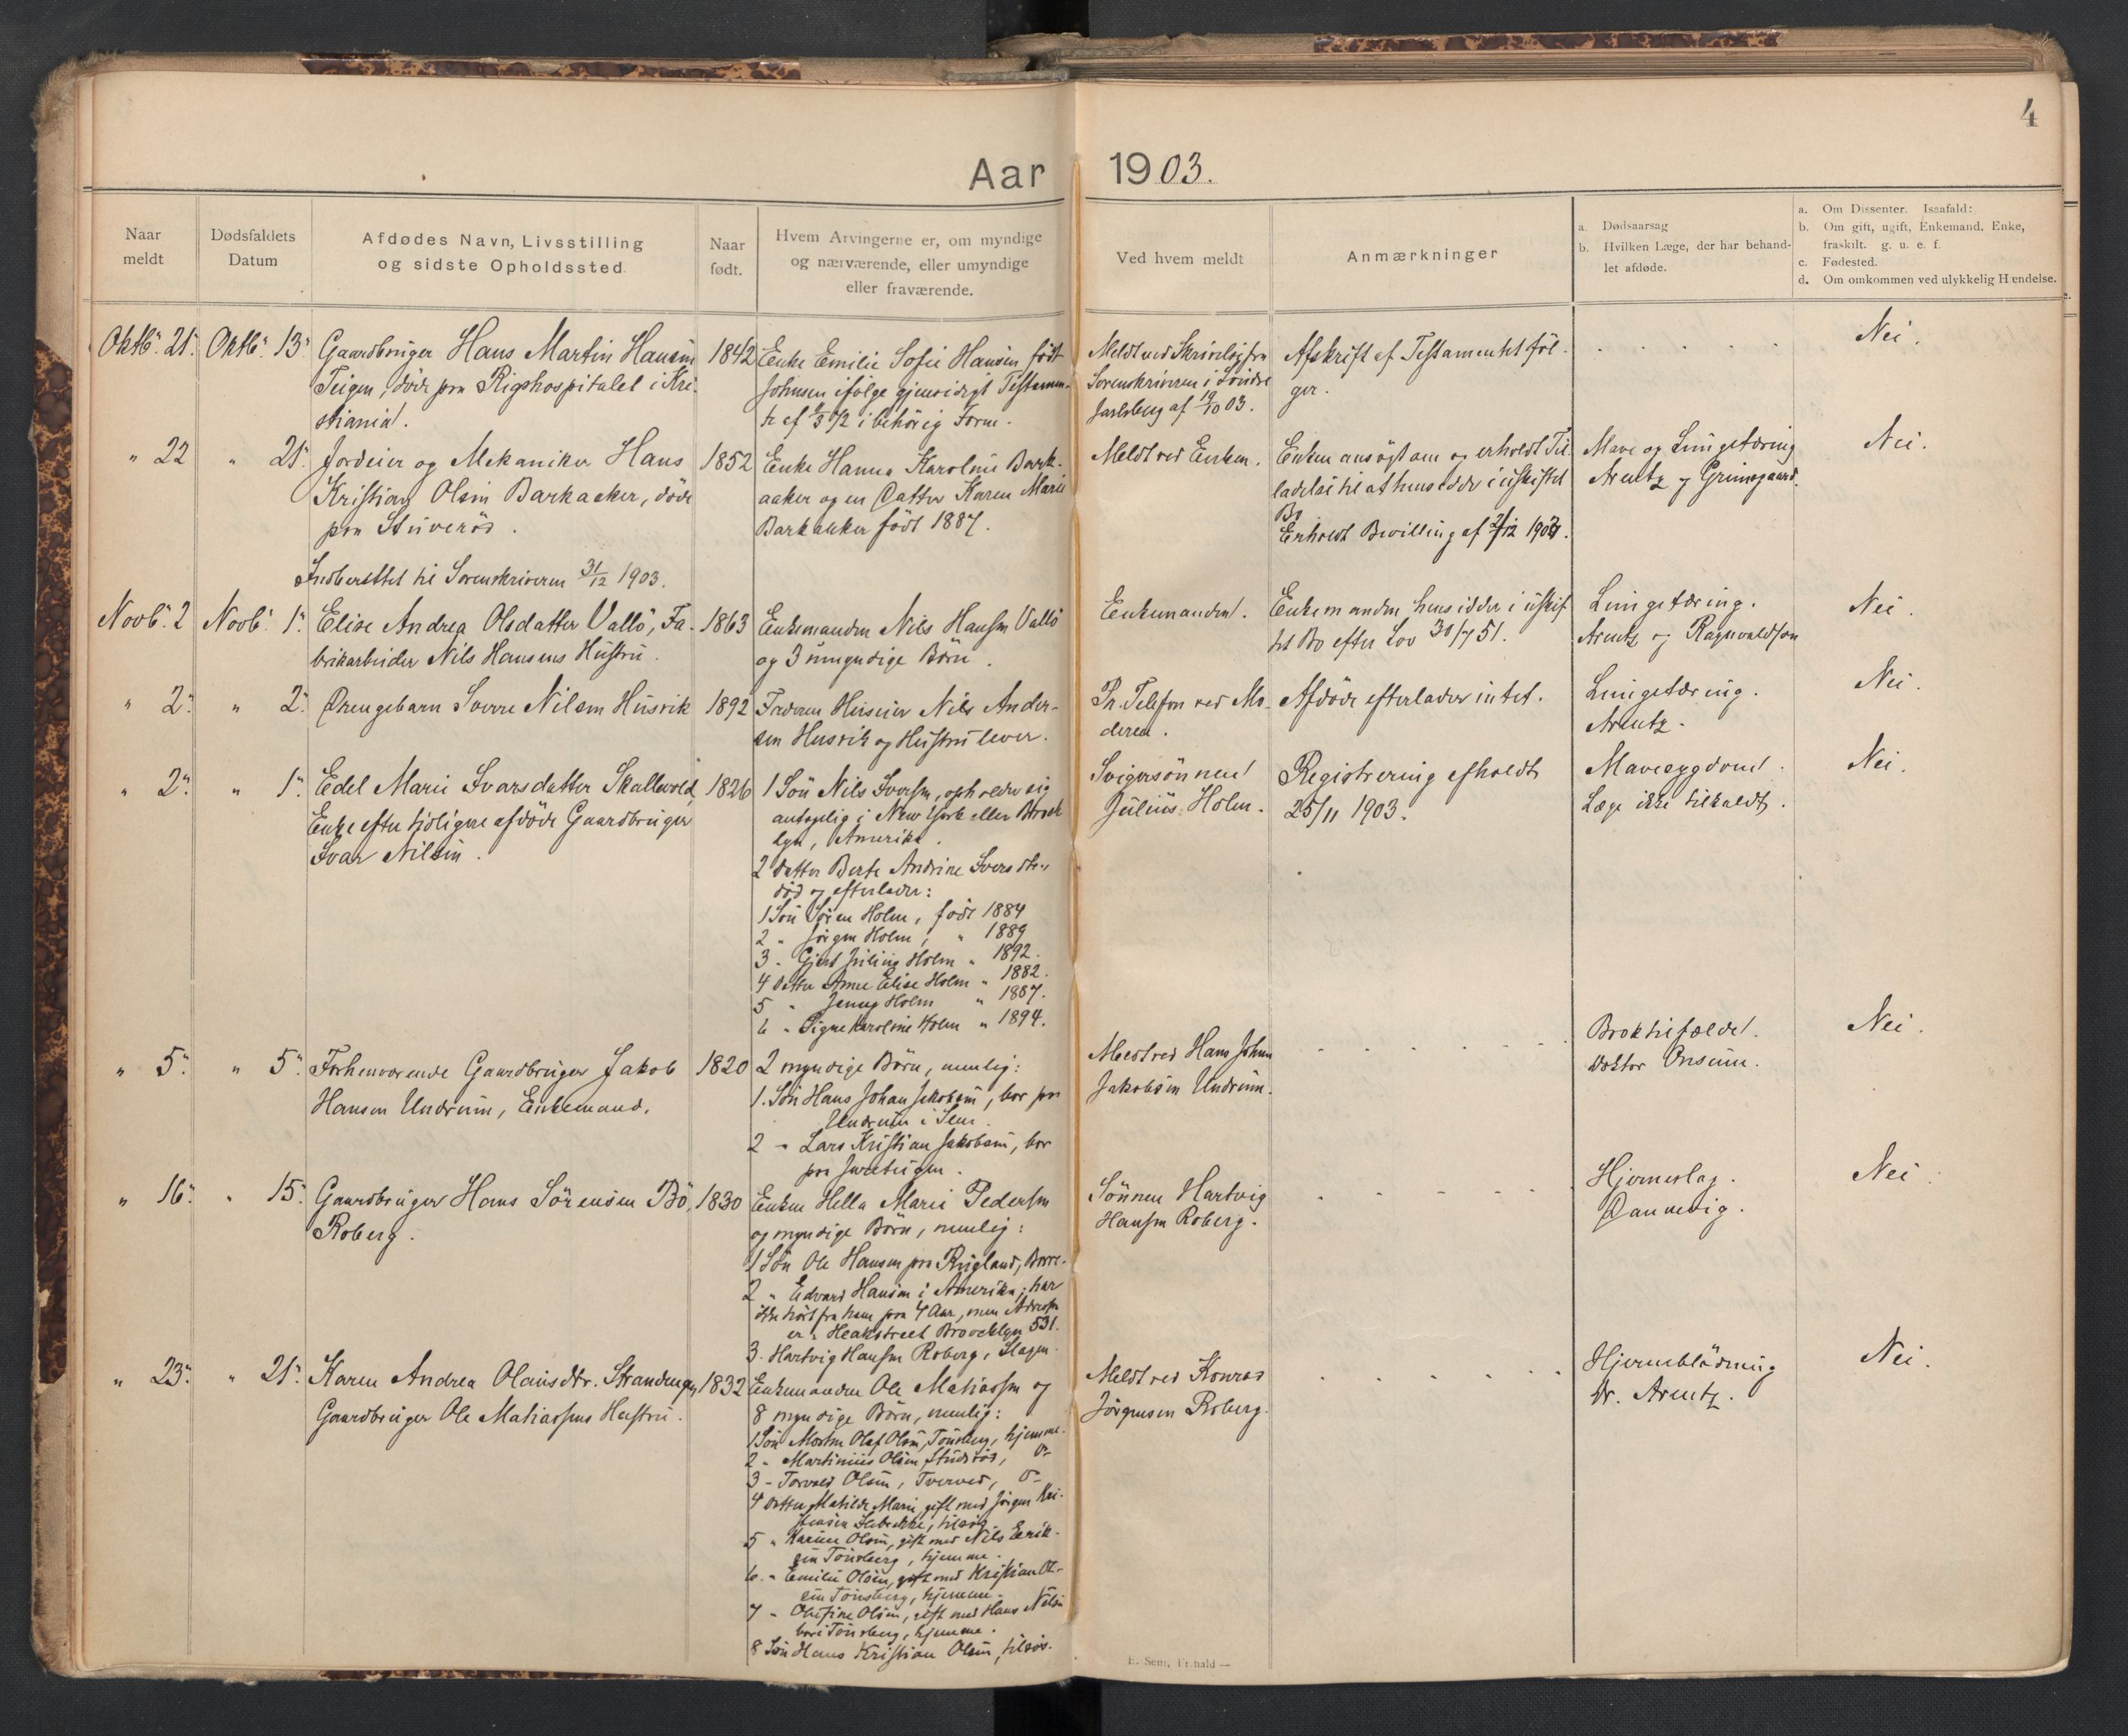 4
Aar 1903.
Naar meldt
Dødsfaldets Datum
Afdødes Navn, Livsstilling og sidste Opholdssted.
Naar født.
Hvem Arvingerne er, om myndige og nærværende, eller umyndige eller fraværende.
Ved hvem meldt
Anmærkninger
a. Dødsaarsag
b. Hvilken Læge, der har behandlet afdøde.
a. Om Dissenter. Isaafald:
b. Om gift, ugift, Enkemand, Enke, fraskilt. g. u. e. f.
c. Fødested.
d. Om omkommen ved ulykkelig Hændelse.
Oktb. 21. Oktb. 13.
Gaardbruger Hans Martin Hansen
Teigen, döde paa Rigshospitalet i Kri-
stiania.
1842
Enke Emilie Sofie Hansen födt
Johnsen ifölge gjensidigt Testamen-
te af i behörig Form.
Meldt ved Skrivelse fra
Sorenskriveren i Söndre
Jarlsberg af 19/10 03.
Afskrift af Testamentet föl-
ger.
Nei.
" 22 " 21.
Jordeier og Mekaniker Hans
Kristian Olsen Barkaaker, döde
paa Stuveröd.
Indberettet til Sorenskriveren 31/12 1903.
1852
Enke Hanna Karoline Bark-
aaker og en Datter Karen Marie
Barkaaker födt 1887.
Meldt ved Enken.
Enken ansögt om og erholdt Til-
ladelse til at hensidde i uskiftet
Bo
Erholdt Bevilling af
Mave og Lungetæring
Arentz og Grimsgaard.
Nei.
Novb. 2 Novb. 1.
Elise Andrea Olsdatter Vallö, Fa-
brikarbeider Nils Hansens Hustru.
1863
Enkemanden Nils Hansen Vallö
og 3 umyndige Börn.
Enkemanden.
Enkemanden hensidder i uskif-
tet Bo efter Lov 30/7 51.
Lungetæring.
Arentz og Ragnvaldsen
Nei.
" 2. " 2.
Drengebarn Sverre Nilsen Husvik
1892
Faderen Huseier Nils Ander-
sen Husvik og Hustru lever.
Pr. Telefon ved Mo-
deren.
Afdöde efterlader intet.
Lungetæring.
Arentz.
Nei.
" 2. " 1.
Edel Marie Ivarsdatter Skallevold,
Enke efter tidligere afdöde Gaardbruger
Ivar Nilsen.
1826
1 Sön Nils Iversen, opholder sig
antagelig i New York eller Brook
lyn, Amerika.
2 Datter Berte Andrine Iversdtr.
död og efterlader:
1 Sön Sören Holm, födt 1884
2 " Jörgen Holm, " 1889
3 " Gjert Julius Holm " 1892.
4 Datter Anne Elise Holm " 1882.
5 " Jenny Holm " 1887.
6 " Signe Karoline Holm " 1894.
Svigersönnen
Julius Holm.
Registrering afholdt
25/11 1903.
Mavesygdom.
Læge ikke tilkaldt.
Nei.
" 5. " 5.
Forhenværende Gaardbruger Jakob
Hansen Undrum, Enkemand.
1820
2 myndige Börn, nemlig:
1. Sön Hans Johan Jakobsen, bor paa
Undrum i Sem.
2 " Lars Kristian Jakobsen, bor
paa
Meldt ved Hans Johan
Jakobsen Undrum.
Broktilfælde.
Doktor Onsum.
Nei.
" 16. " 15.
Gaardbruger Hans Sörensen Bö,
Roberg.
1830
Enken Hella Marie Pedersen
og myndige Börn, nemlig:
1 Sön Ole Hansen paa Rugland, Borre.
2 " Edvard Hansen i Amerika; har
ikke hört fra ham paa 4 Aar, men Adressen
er " Heakstreet Broocklyn 531.
3. Hartvig Hansen Roberg, Slagen.
Sönnen Hartvig
Hansen Roberg.
Hjerneslag.
Dannevig.
Nei.
" 23. " 21.
Karen Andrea Olausdtr. Strandengen,
Gaardbruger Ole Matiassens Hustru.
1832
Enkemanden Ole Matiassen og
8 myndige Börn, nemlig:
1 Sön Morten Olaf Olsen, Tönsberg, hjemme.
2 " Martinius Olsen, Studeröd, do
3 " Torvald Olsen, Tverved, do
4 Datter Matilde Marie, gift med Jörgen Kri-
stensen tilsös
5 " Karine Olsen, gift med Nils Erik-
sen Tönsberg, hjemme.
6. " Emilie Olsen, gift med Kristian Ol-
sen Tönsberg, hjemme.
7 " Olefine Olsen, gift med Hans Nilsen
bor i Tönsberg, hjemme.
8 Sön Hans Kristian Olsen, tilsös.
Meldt ved Konrad
Jörgensen Roberg.
Hjerneblödning
Dr. Arentz.
Nei.
E. Sem, Fr.hald —